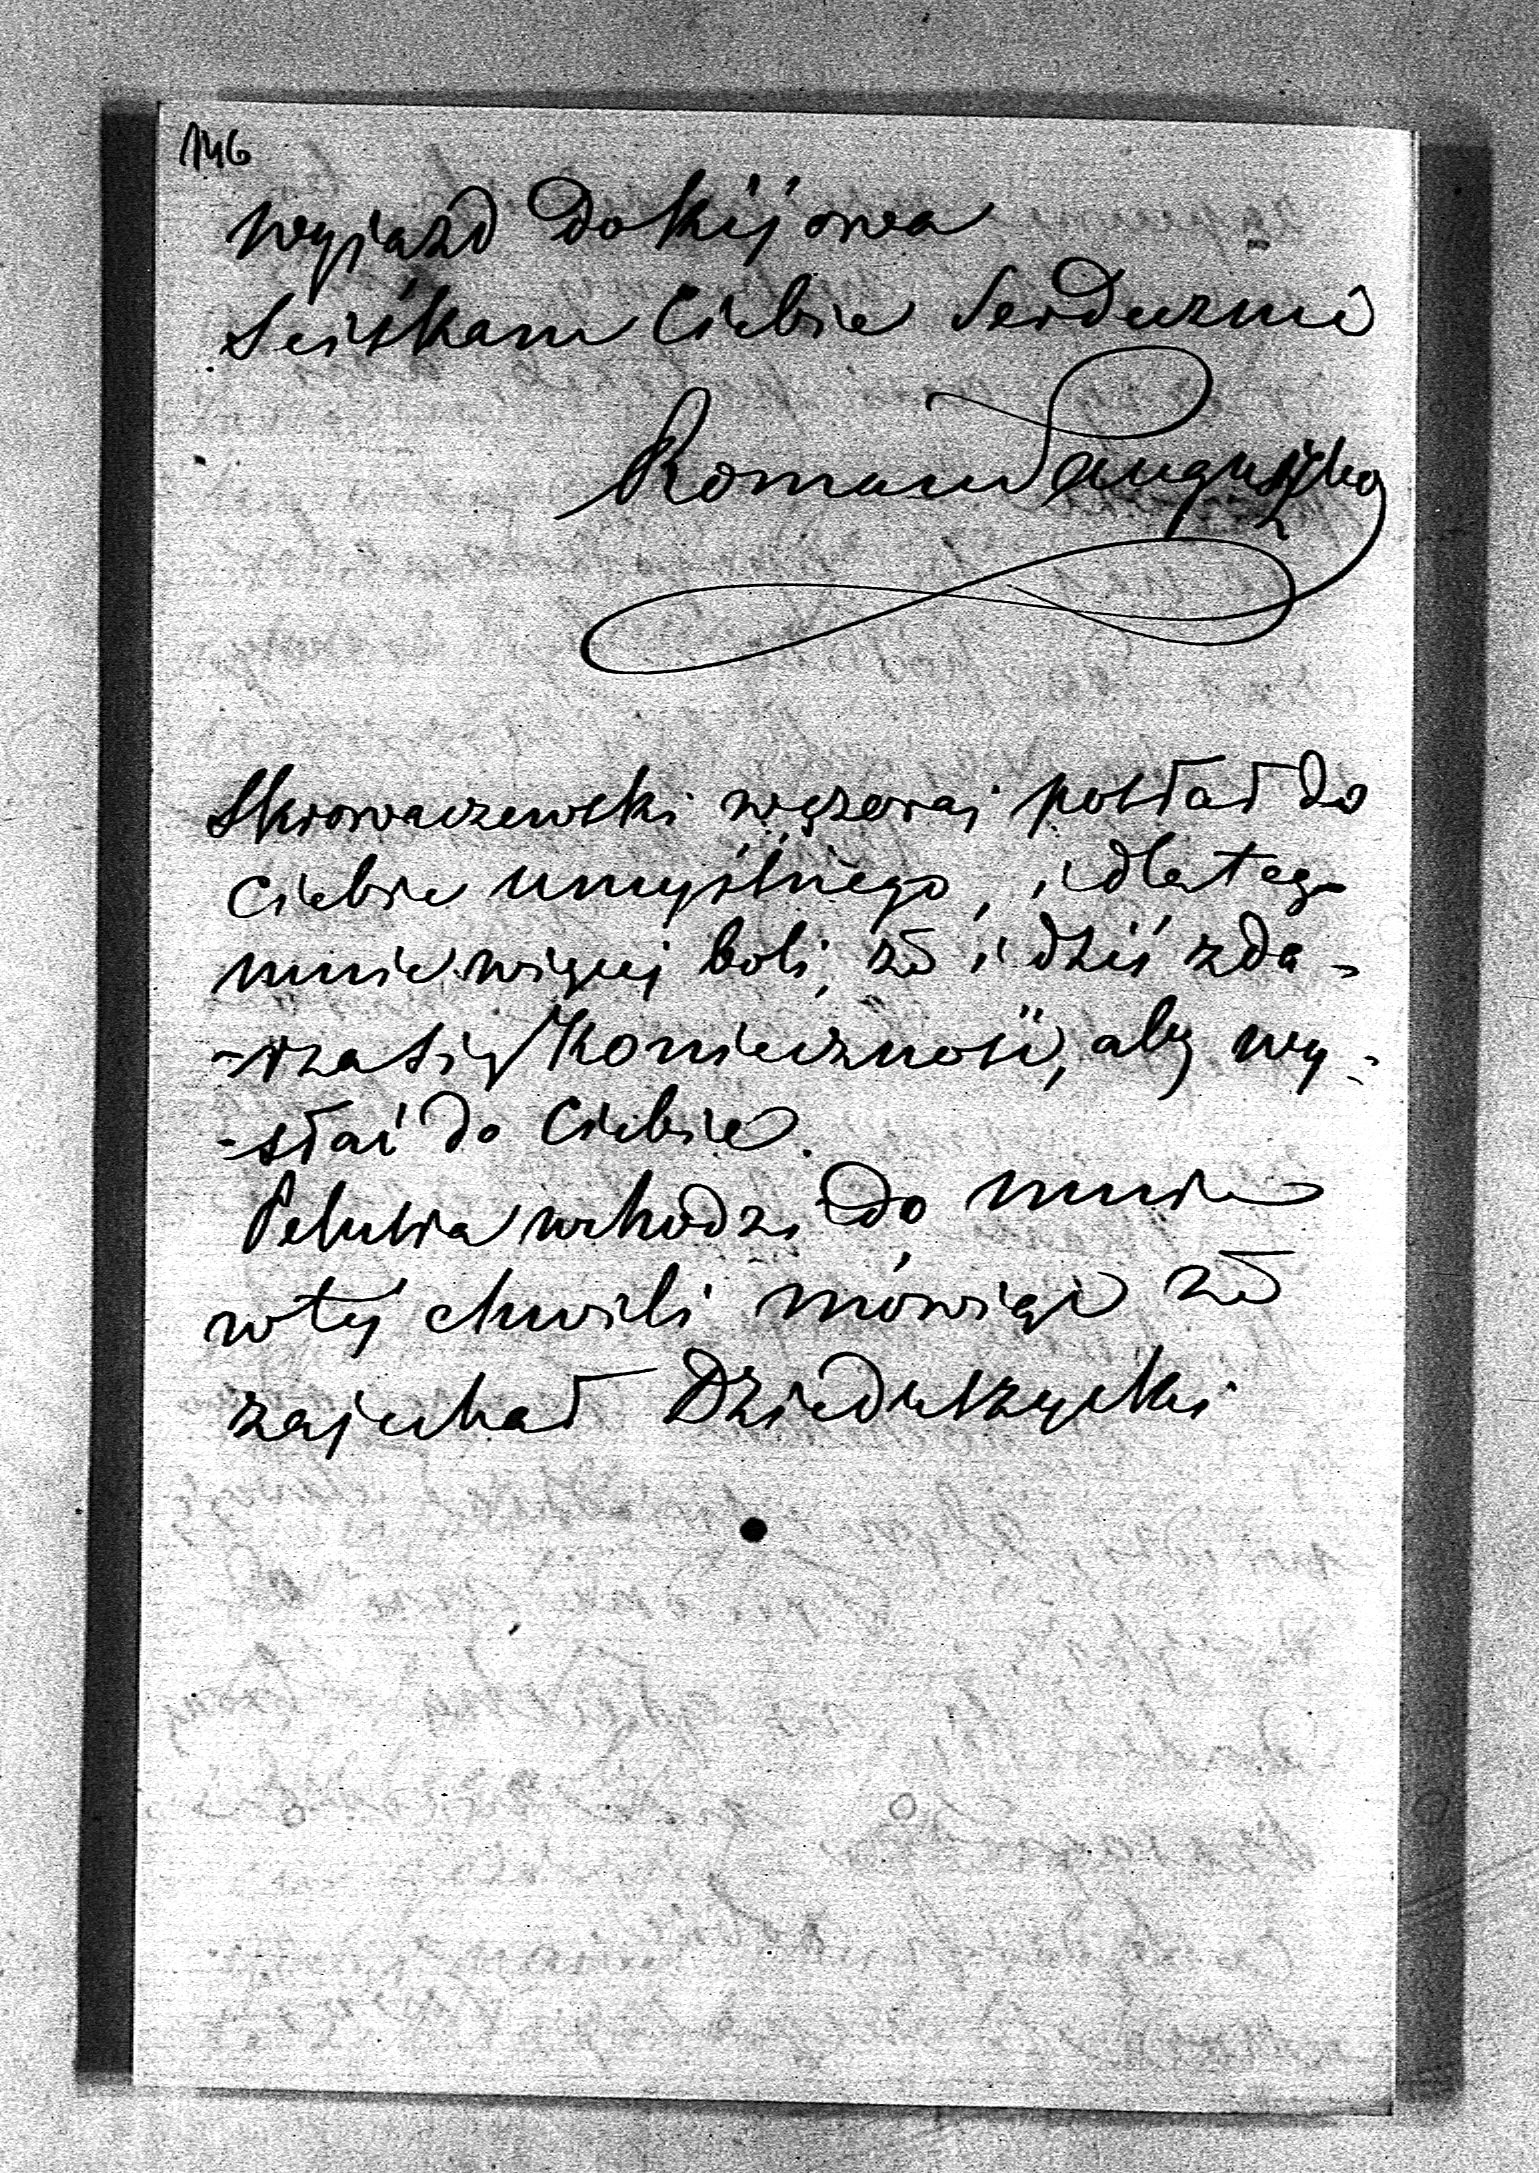 146
wyjazd do Kijowa
Sciskam Ciebie Serdecznie
Roman Sanguszko
Skrowaczewski wczoraj posłał do
Ciebie umyślnego, i dlatego
mnie więcej boli, że i dziś zda-
-rza się Konieczność, aby wy-
-słać do Ciebie.
wchodzi do mnie
w tej chwili mówiąc że
zajechał Dzieduszycki